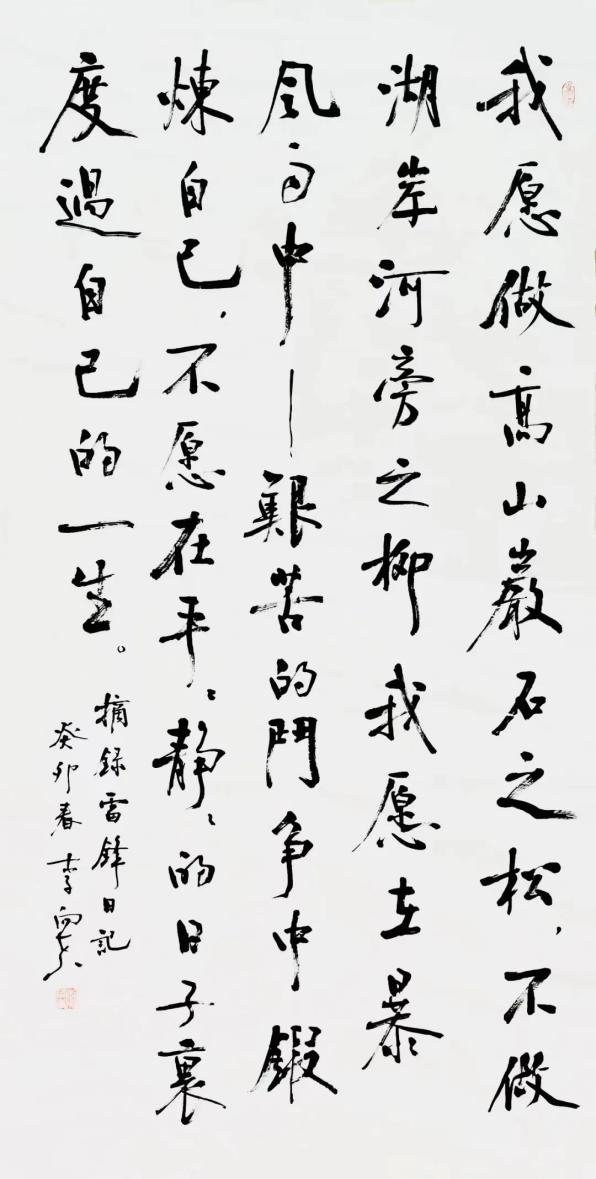 我愿做高山巖石之松，不做
湖岸河旁之柳我愿在暴
风雨中—艱苦的鬥争中鍛
煉自己，不愿在平〻静〻的日子裏
度過自己的一生。
摘録雷鋒日記
癸卯春 李向东